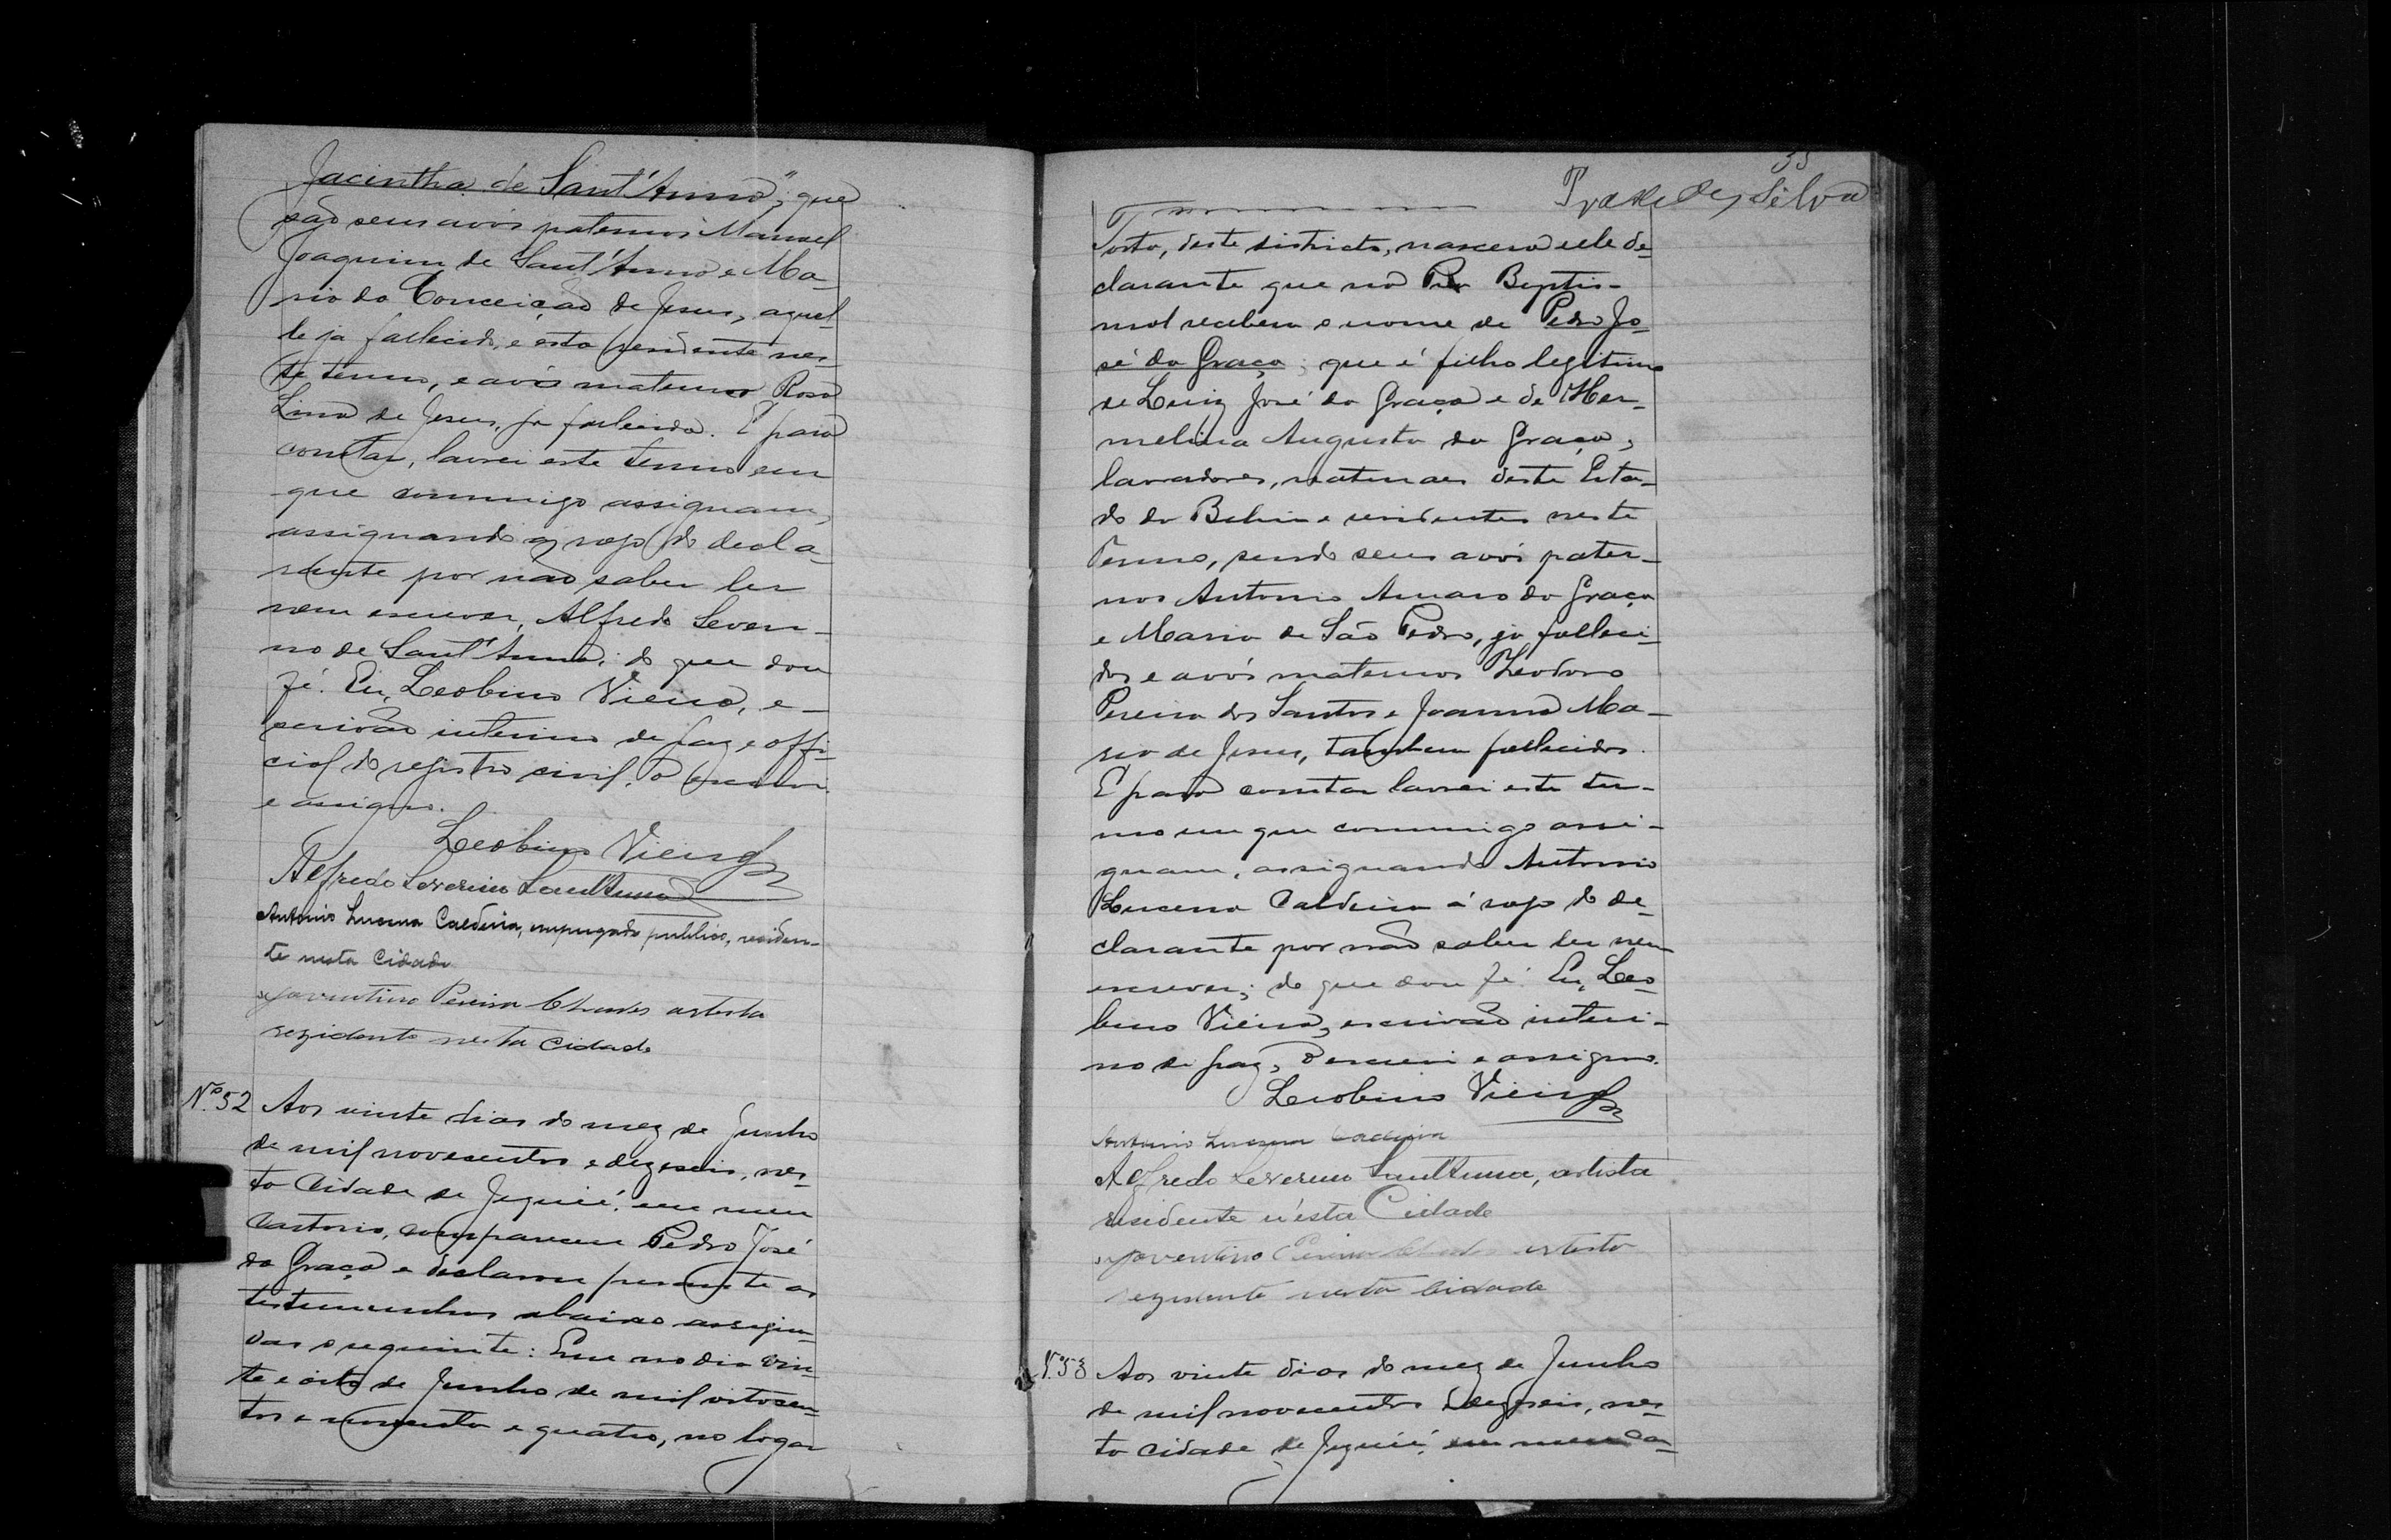 Jacintha de Sant'Anna"; que
são seus avós paternos Manoel
Joaquim de Sant'Anna e Ma-
ria da Conceição de Jesus, aquel-
le ja fallecido, e esta residente nes-
te termo, e avós maternos Rosa
Lina de Jesus, ja fallecida. E para
constar, lavrei este termo em
que commigo assignam,
assignando a rogo do decla-
rante por não saber ler
nem escrever, Alfredo Severi-
no de Sant'Anna; do que dou
fé. Eu, Leobino Vieira, e-
scrivão interino de paz e offi-
cial do registro civil, o escrevi
e assigno.
Leobino Vieira
Alfredo Severino Sant'Anna
Antonio Lucena Caldeira, empregado publico, residen-
te nesta Cidade
Joventino Pereira Chaves artista
rezidente nesta Cidade
Nº 52 Aos vinte dias do mez de Junho
de mil novecentos e dezeseis, nes-
ta Cidade de Jequié, em meu
Cartorio, compareceu Pedro José
da Graça e declarou perante as
testemunhas abaixo assigna-
das o seguinte: Que no dia vin-
te e oito de Junho de mil oitocen-
tos e noventa e quatro, no logar
35
Silva
Torto, deste districto, nascera elle de-
clarante que na Pia Baptis-
mal recebeu o nome de Pedro Jo-
sé da Graça; que é filho legitimo
de Luiz José da Graça e de Her-
melina Augusta da Graça,
lavradores, naturaes deste Esta-
do da Bahia e residentes neste
Termo, sendo seus avós pater-
nos Antonio Amaro da Graça
e Maria de São Pedro, ja falleci-
dos e avós maternos Theodoro
Pereira dos Santos e Joanna Ma-
ria de Jesus, tambem fallecidos.
E para constar lavrei este ter-
mo em que commigo assi-
gnam, assignando Antonio
Lucena Caldeira á rogo do de-
clarante por não saber ler nem
escrever; do que dou fé. Eu, Leo-
bino Vieira, escrivão interi-
no de paz, o escrevi e assigno.
Leobino Vieira
Antonio Lucena Caldeira
Alfredo Severino Sant'Anna, artista
residente n'esta Cidade
Joventino Pereira Chaves artista
rezidente nesta Cidade
N. 53 Aos vinte dias do mez de Junho
de mil novecentos e dezeseis, nes-
ta cidade de Jequié, em meu Car-